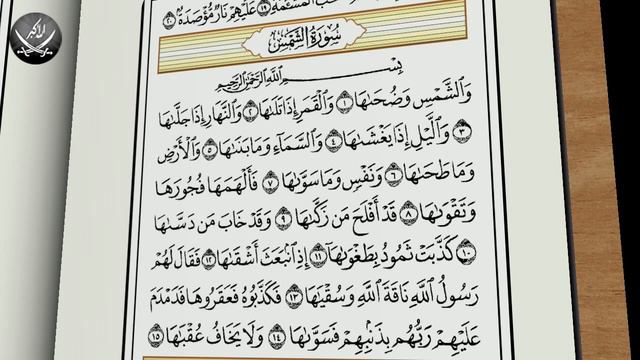 عَلَيْهِمْ نَارٌ مُّؤْصَدَةٌ ٢٠
سُورَةُ الشَّمْسِ
بِسْمِ اللَّهِ الرَّحْمَٰنِ الرَّحِيمِ
وَالشَّمْسِ وَضُحَىٰهَا ١ وَالْقَمَرِ إِذَا تَلَىٰهَا ٢ وَالنَّهَارِ إِذَا جَلَّىٰهَا
٣ وَالَّيْلِ إِذَا يَغْشَىٰهَا ٤ وَالسَّمَاءِ وَمَا بَنَىٰهَا ٥ وَالْأَرْضِ
وَمَا طَحَىٰهَا ٦ وَنَفْسٍ وَمَا سَوَّىٰهَا ٧ فَأَلْهَمَهَا فُجُورَهَا
وَتَقْوَىٰهَا ٨ قَدْ أَفْلَحَ مَن زَكَّىٰهَا ٩ وَقَدْ خَابَ مَن دَسَّىٰهَا
١٠ كَذَّبَتْ ثَمُودُ بِطَغْوَىٰهَا ١١ إِذِ انۢبَعَثَ أَشْقَىٰهَا ١٢ فَقَالَ لَهُمْ
رَسُولُ اللَّهِ نَاقَةَ اللَّهِ وَسُقْيَٰهَا ١٣ فَكَذَّبُوهُ فَعَقَرُوهَا فَدَمْدَمَ
عَلَيْهِمْ رَبُّهُم بِذَنۢبِهِمْ فَسَوَّىٰهَا ١٤ وَلَا يَخَافُ عُقْبَٰهَا ١٥